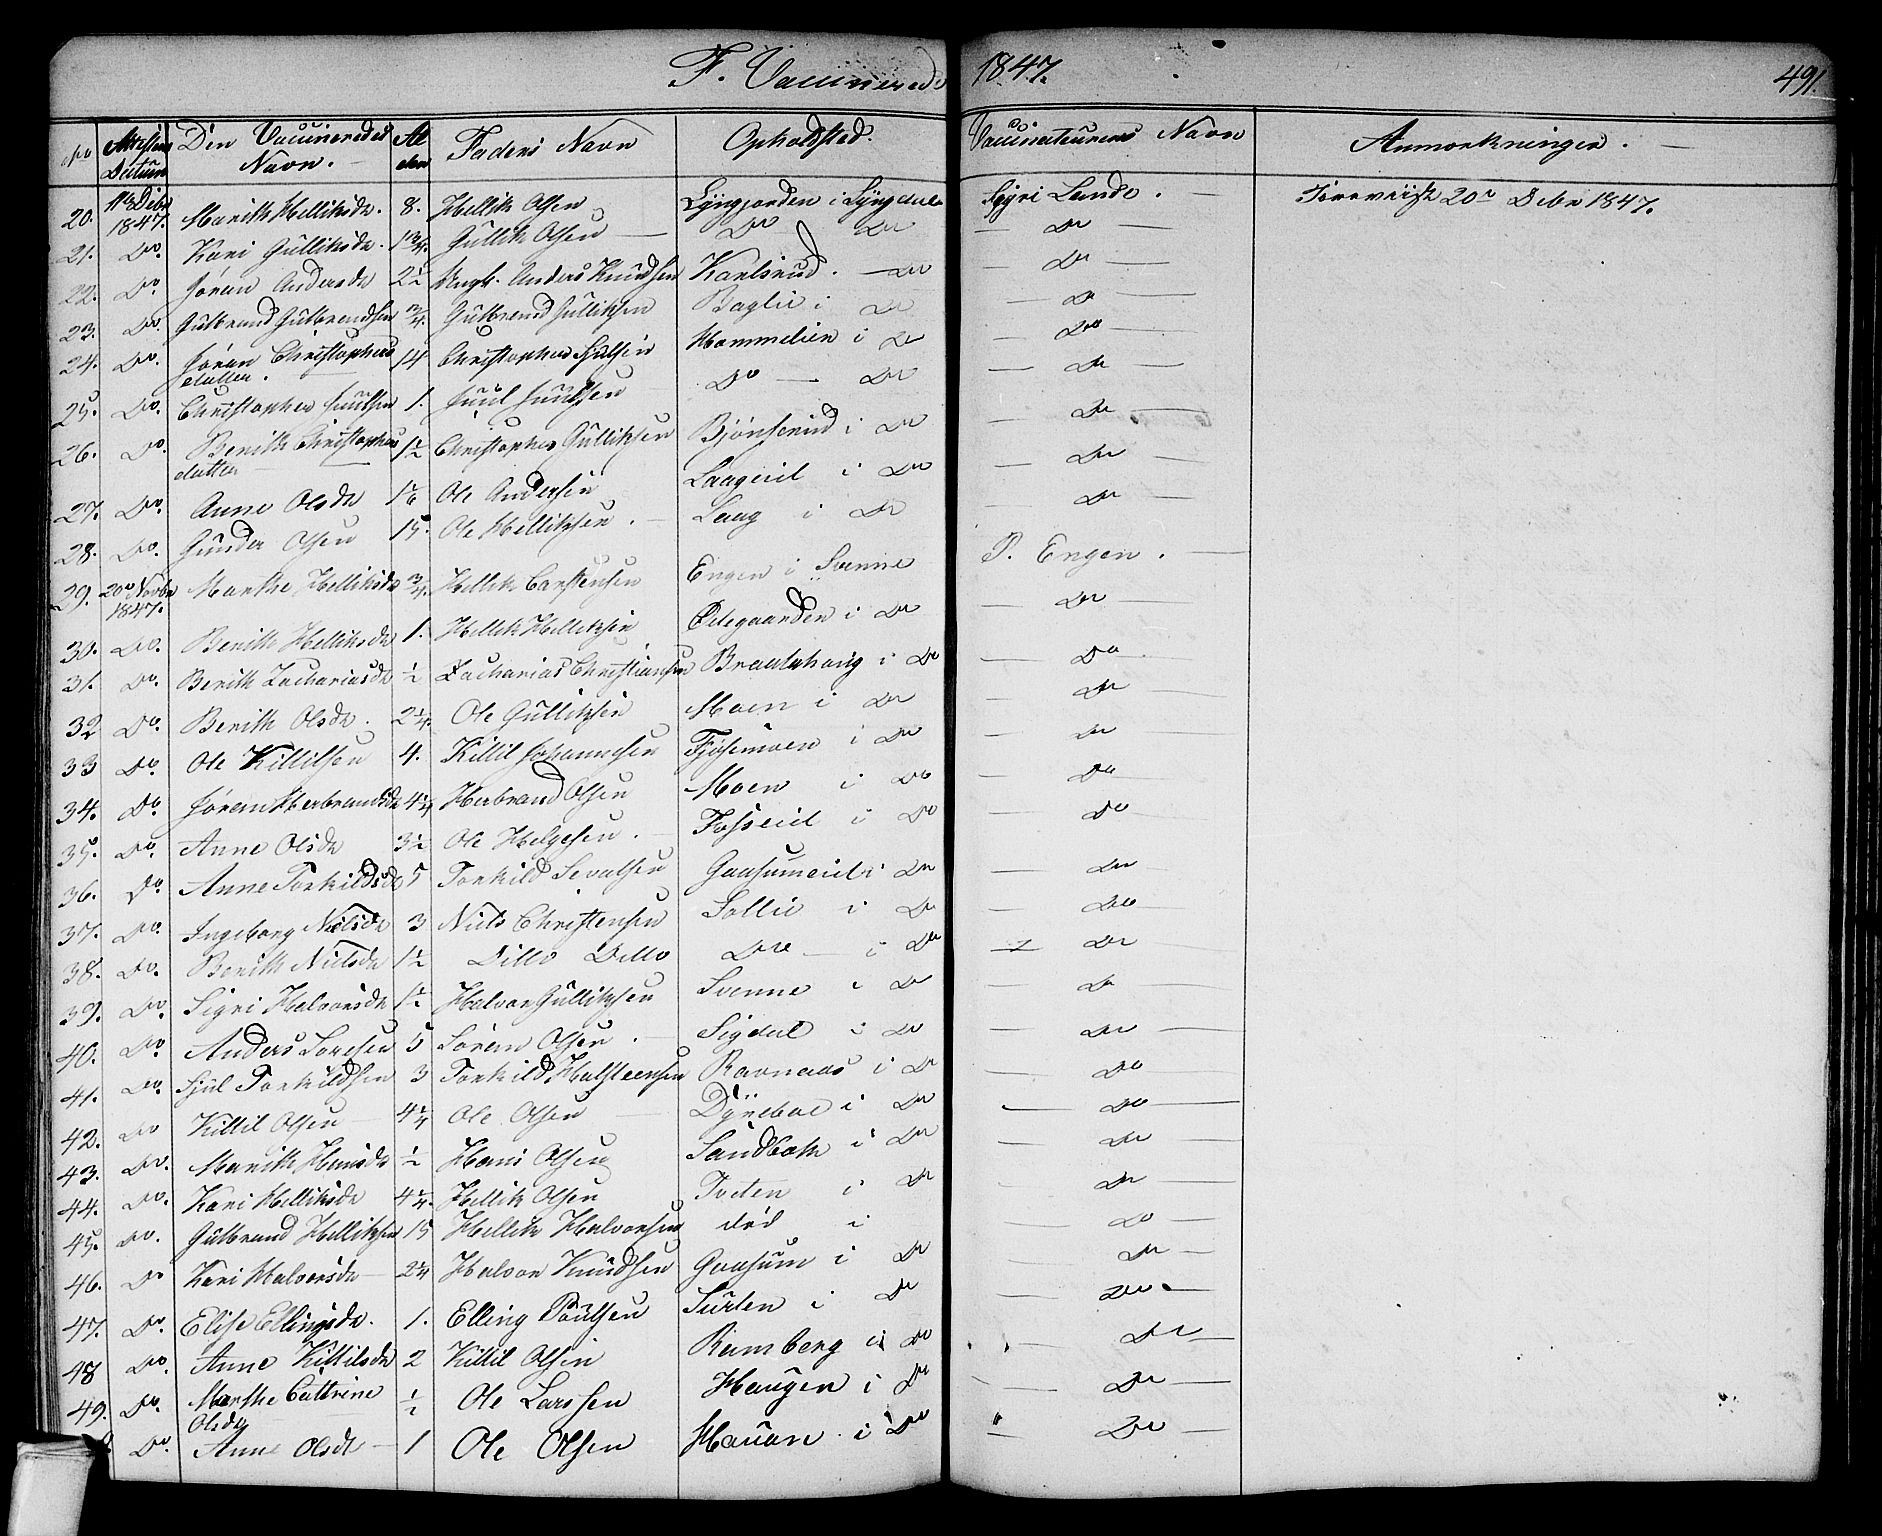 F. Vaccinerede 1847. 491.
No Attestens Datum Den Vaccineredes Navn. Alderen Faders Navn Opholdsted. Vaccinateurens Navn Anmærkninger.
20. 11te Debr 1847. Marith Helliksdr. 8. Hellik Olsen Lÿngjorden i Lÿngdal Sigri Lande. Foreviist 20de Debr 1847.
21. Do. Kari Gulliksdr. 1 3/4. Gullik Olsen Do Do Do
22. Do. Jøran Andersdr 2 1/2 Ungk. Anders Knudsen Karlsrud. Do Do
23. Do. Gulbrand Gulbrandsen 3/4. Gulbrand Gulliksen Baglie i Do Do
24. Do. Jøran Christophersdatter. 14 Christopher Juulsen Hammelien i Do Do
25. Do. Christopher Juulsen 1. Juul Juulsen Do Do Do
26. Do. Berith Christophersdatter 1 1/2 Christopher Gulliksen Bjönserud i Do Do
27. Do. Anne Olsdr 1/6 Ole Andersen Laageid i Do Do
28. Do. Gunder Olsen 15. Ole Helliksen. Laag i Do Do
29. 20de Novbr 1847. Marthe Helliksdr 3/4. Hellik Carstensen Engen i Svenne P. Engen.
30. Do. Berith Helliksdr 1. Hellik Helliksen Ødegaarden i Do Do
31. Do. Berith Zachariasdr 1/2 Zacharias Christiansen Brautehaug i Do Do
32 Do. Berith Olsdr. 2 1/4. Ole Gulliksen Moen i Do Do
33 Do. Ole Killilsen 4. Killil Johannesen Fjösemoen i Do Do
34. Do. Jøran Herbrandsdr 4 1/4 Herbrand Olsen Moen i Do Do
35. Do. Anne Olsdr 3 1/2 Ole Helgesen. Fosseid i Do Do
36. Do. Anne Torkildsdr 5 Torkild Sevalsen Gaasumeid i Do Do
37. Do. Ingeborg Nielsdr 3 Niels Christensen Sollie i Do Do
38. Do. Berith Nielsdr 1 1/2 Ditto Ditto Do i Do Do
39. Do. Sigri Halvorsdr 1 1/2 Halvor Gulliksen Svenne i Do Do
40. Do. Anders Sörensen 5 Sören Olsen. Sigdal i Do Do
41. Do. Juul Torkildsen 3 Torkild Halsteensen Ravnaas i Do Do
42. Do Killil Olsen 4 1/4 Ole Olsen Dÿrebac i Do Do
43. Do. Marith Hansdr 1/2 Hans Olsen Sandbak i Do Do
44. Do. Kari Helliksdr 4 1/4. Hellik Olsen Tveten i Do Do
45. Do. Gulbrand Helliksen 15 Hellik Halvorsen död i Do
46. Do Kari Halvorsdr 2 1/4 Halvor Knudsen Gaasum i Do Do
47. Do. Elise Ellingsdr. 1. Elling Poulsen Surten i Do Do
48 Do. Anne Kittilsdr 2 Kittil Olsen Ramberg i Do Do
49. Do. Marthe Cattrine Olsdr 1/2 Ole Larssen Haugen i Do Do
Do. Anne Olsdr 1 Ole Olsen Havan i Do Do